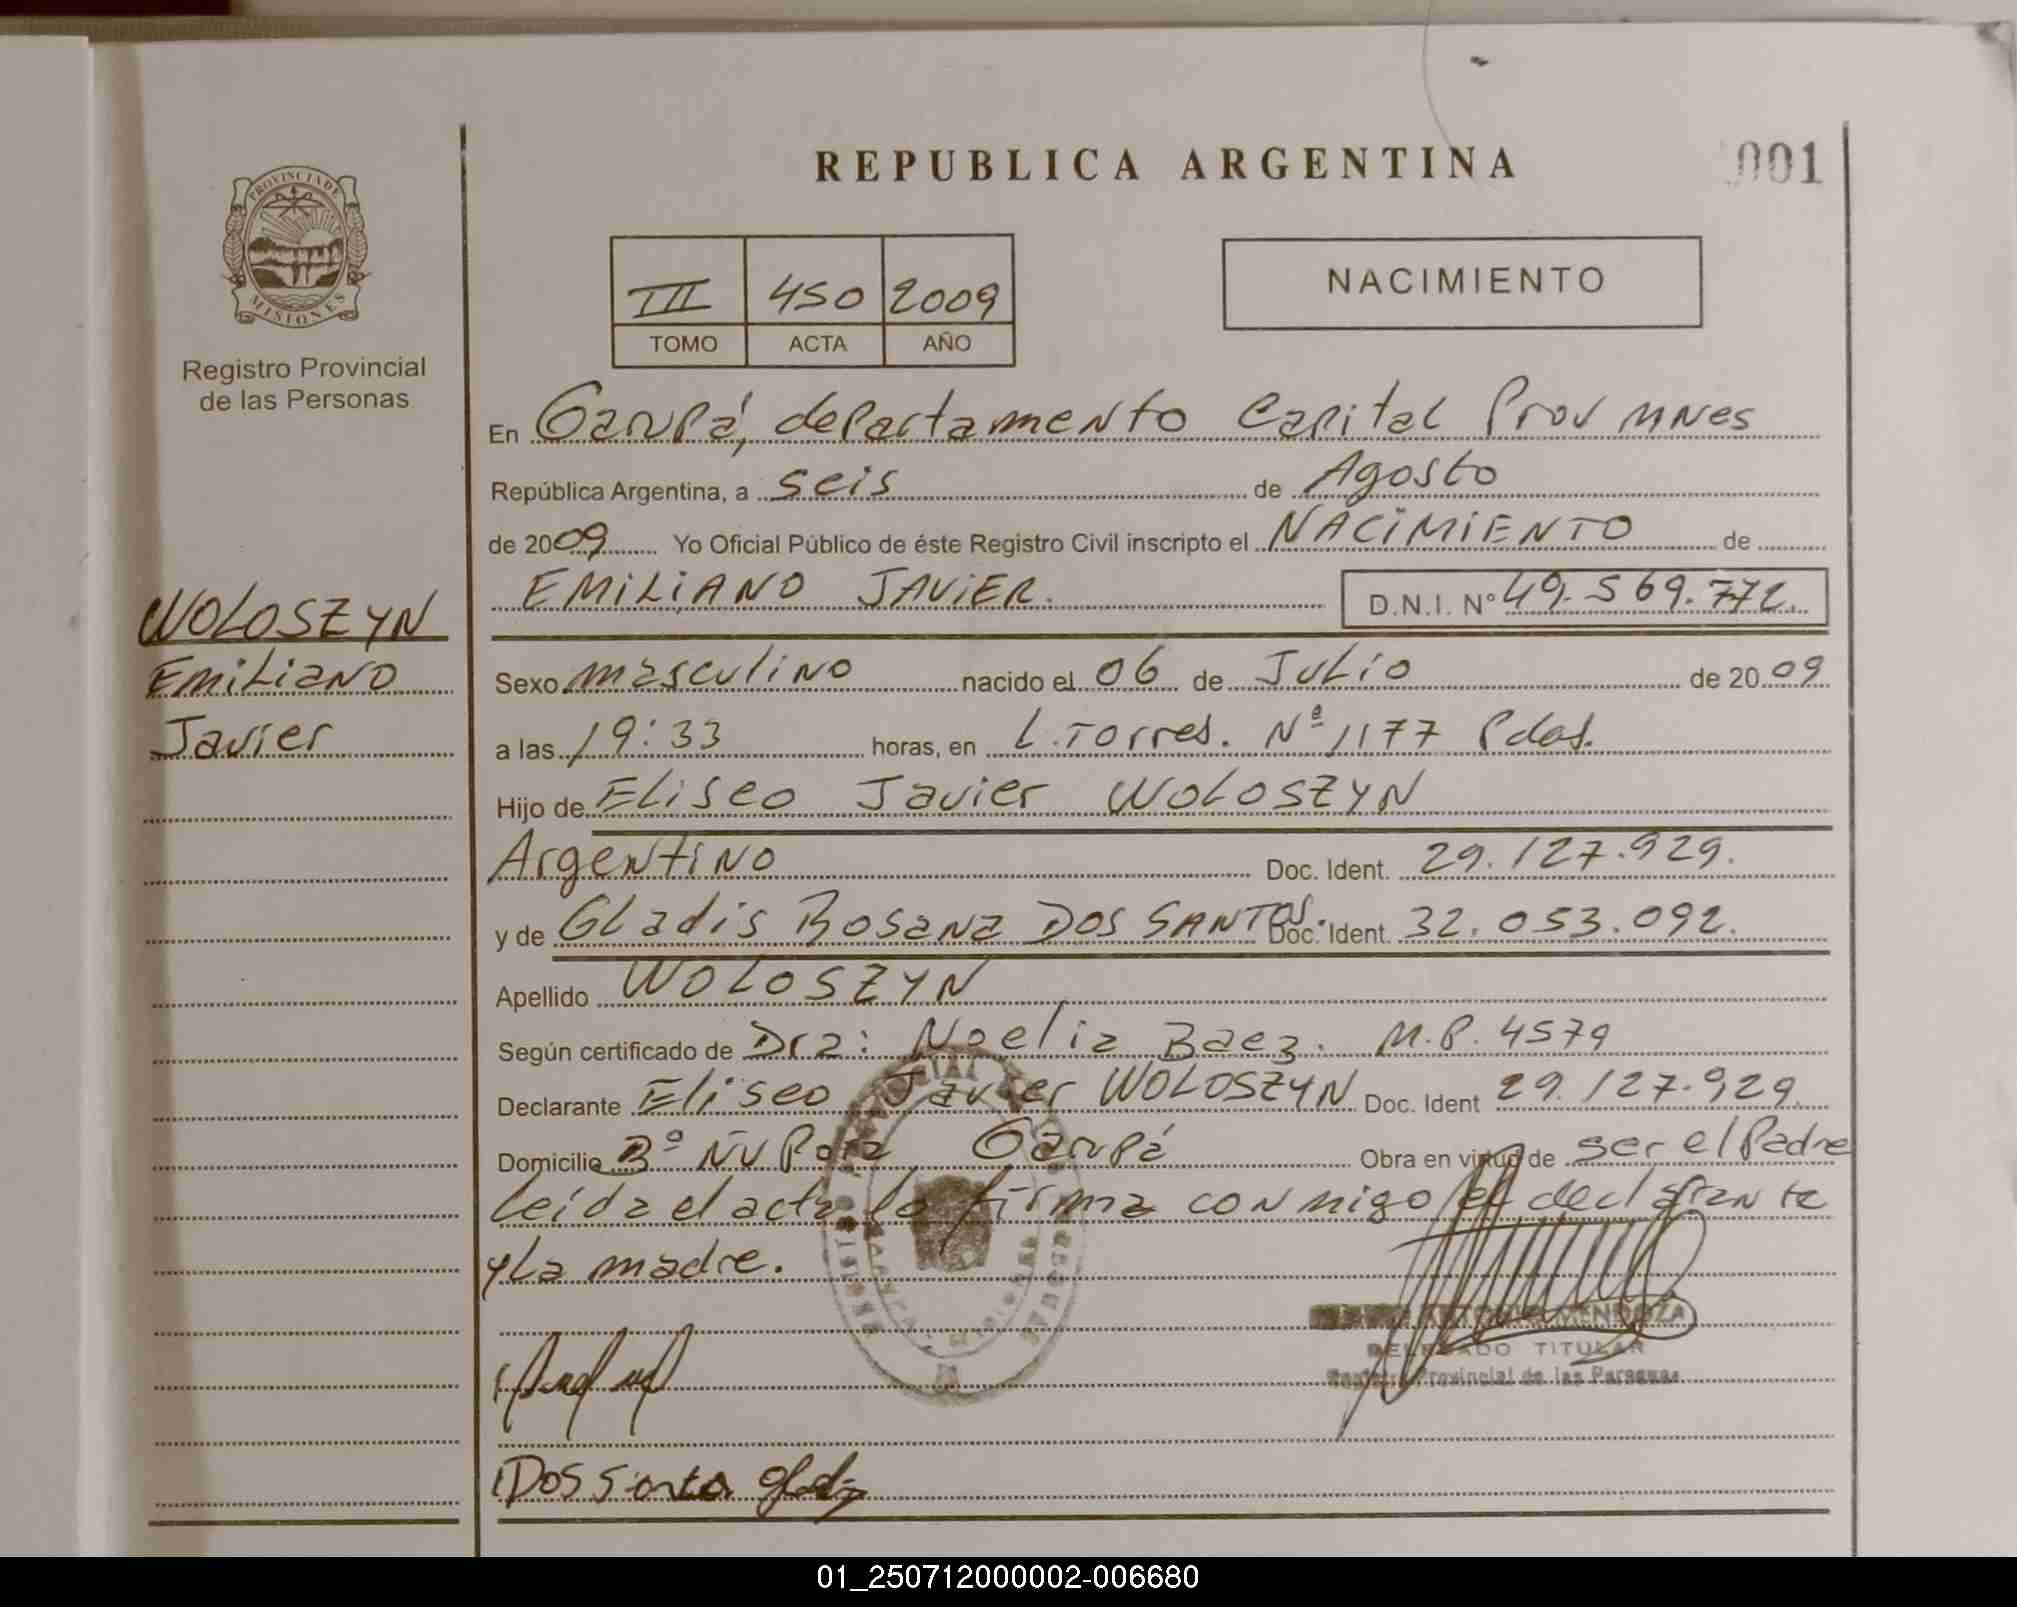 REPUBLICA ARGENTINA
001
PROVINCIA DE MISIONES
Registro Provincial
de las Personas
III 450 2009
TOMO ACTA AÑO
NACIMIENTO
En Garupá, departamento Capital Prov Mnes
República Argentina, a seis de Agosto
de 2009 Yo Oficial Público de éste Registro Civil inscripto el NACIMIENTO de
EMILIANO JAVIER. D.N.I. Nº 49.569.772.
WOLOSZYN
Emiliano
Javier
Sexo masculino nacido el 06 de Julio de 2009
a las 19:33 horas, en L. Torres. Nº 1177 Pdas.
Hijo de Eliseo Javier WOLOSZYN
Argentino Doc. Ident. 29.127.929.
y de Gladis Rosana DOS SANTOS. Doc. Ident. 32.053.092.
Apellido WOLOSZYN
Según certificado de Dra: Noelia Baez. M.P. 4579
Declarante Eliseo Javier WOLOSZYN Doc. Ident 29.127.929.
Domicilio Bº Ñu Pora Garupá Obra en virtud de ser el Padre
Leída el acta la firma conmigo el declarante
y La madre.
ANTONIO MENDOZA
DELEGADO TITULAR
Registro Provincial de las Personas
Dos Santos
01_250712000002-006680